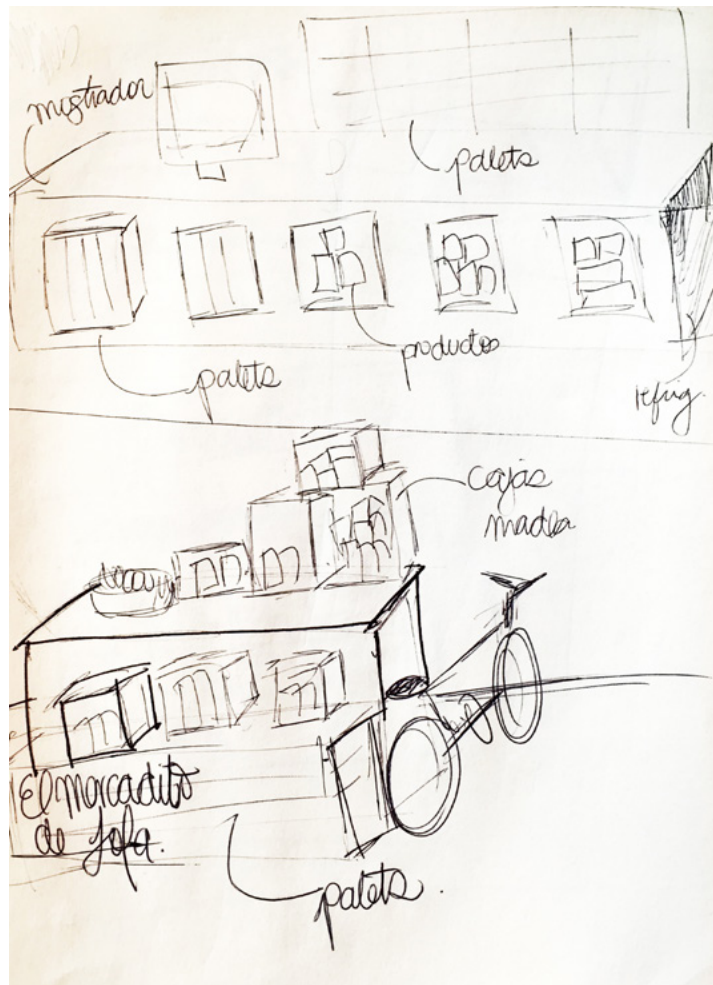 mostrador
palets
productos
palets
refrig.
cajas
madera
El mercadito
de Sofa.
palets.